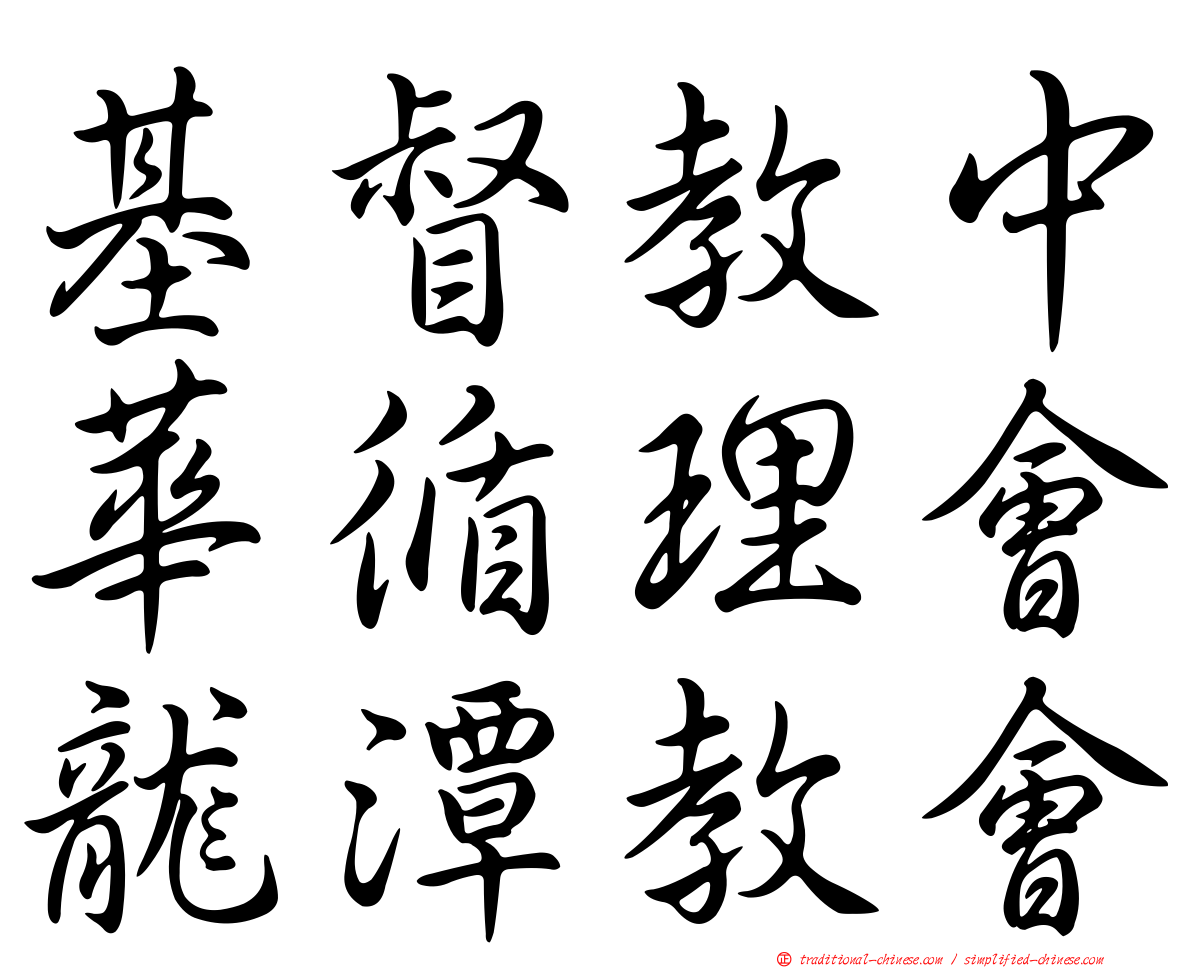 基督教中
華循理會
龍潭教會
㊣ traditional-chinese.com / simplified-chinese.com